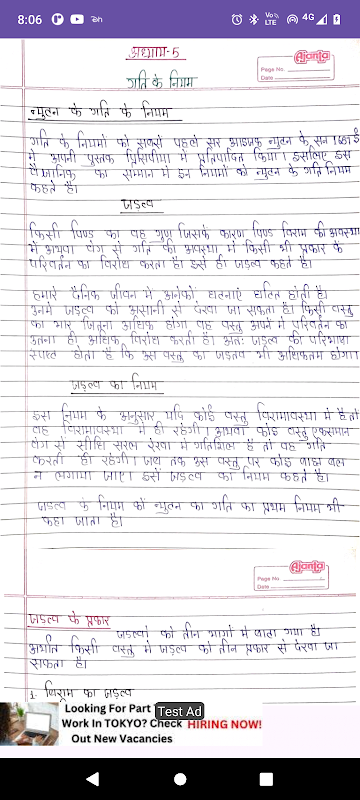 8:06
Vo)) LTE 4G
अध्याय-5
Ajanta
Page No.
Date
गति के नियम
न्यूटन के गति के नियम
गति के नियमों को सबसे पहले सर आइजक न्यूटन के सन 1687 ई
में अपनी पुस्तक प्रिंसिपीया में प्रतिपादित किया। इसलिए इस
वैज्ञानिक का सम्मान में इन नियमों को न्यूटन के गति नियम
कहते है।
जड़त्व
किसी पिण्ड का वह गुण जिसके कारण पिण्ड विराम की अवस्था
में अथवा वेग से गति की अवस्था में किसी भी प्रकार के
परिवर्तन का विरोध करता है। इसे ही जड़त्व कहते है।
हमारे दैनिक जीवन में अनेकों घटनाएं घटित होती है।
उनमें जड़त्व को असानी से देखा जा सकता है। किसी वस्तु
का भार जितना अधिक होगा वह वस्तु अपने में परिवर्तन का
उतना ही अधिक विरोध करती है। अतः जड़त्व की परिभाषा
स्पष्ट होता है कि उस वस्तु का जड़त्व भी अधिकतम होगा।
जड़त्व का नियम
इस नियम के अनुसार यदि कोई वस्तु विरामावस्था में है तो
वह विरामावस्था में ही रहेगी। अथवा कोई वस्तु एकसमान
वेग से सीधि सरल रेखा में गतिशिल है तो वह गति
करती ही रहेगी। जब तक उस वस्तु पर कोई बाह्य बल
न लगाया जाए। इसे जड़त्व का नियम कहते है।
जड़त्व के नियम को न्यूटन का गति का प्रथम नियम भी
कहा जाता है।
Ajanta
Page No.
Date
जड़त्व के प्रकार
जड़त्वों को तीन भागों में बाटा गया है।
अर्थात किसी वस्तु में जड़त्व को तीन प्रकार से देखा जा
सकता है।
1. विराम का जड़त्व
Looking For Part
Test Ad
Work In TOKYO? Check HIRING NOW!
Out New Vacancies